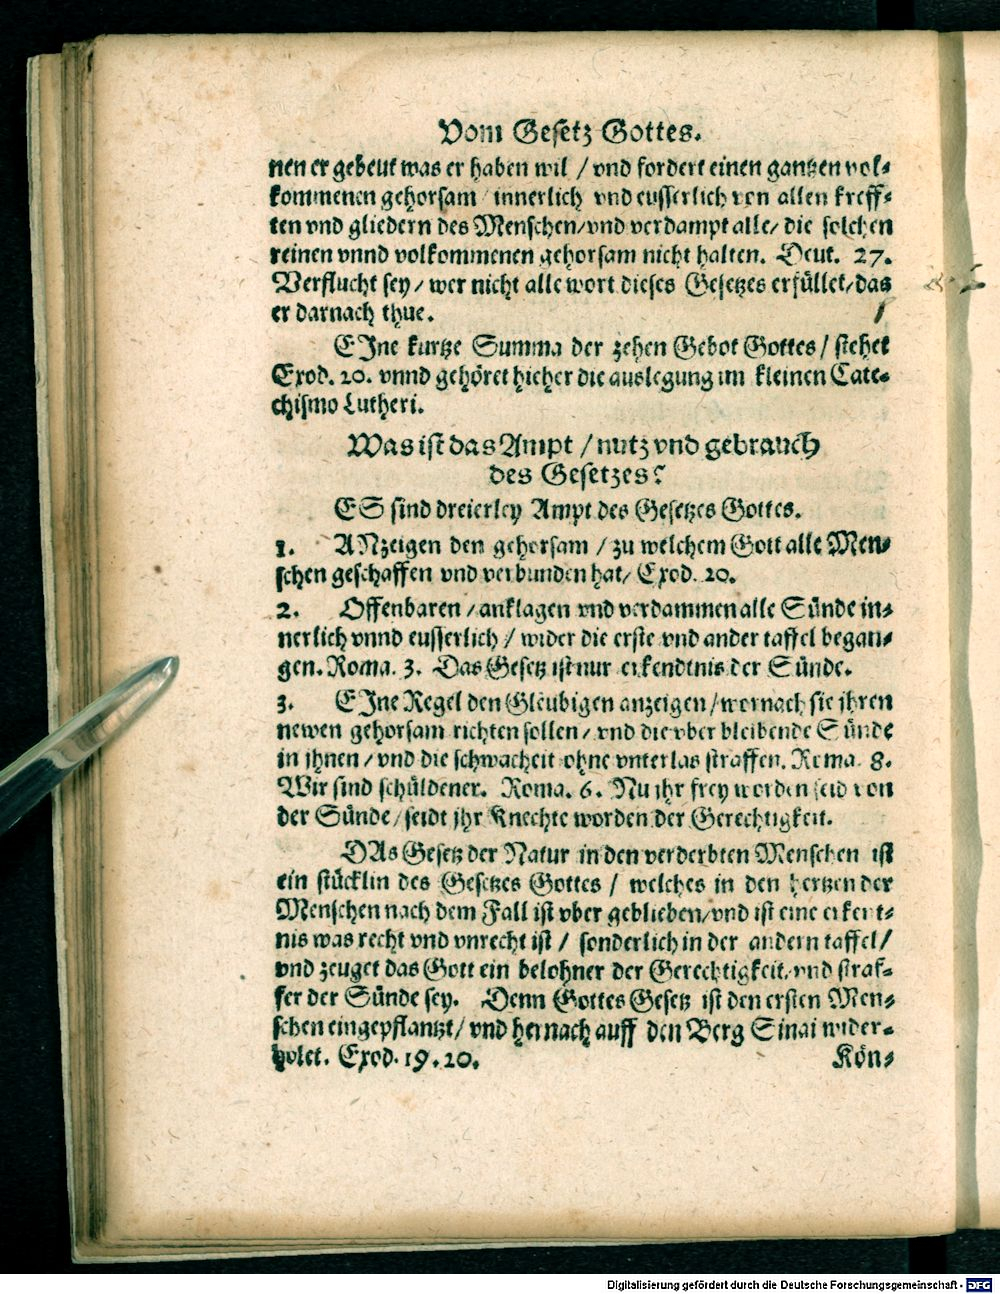 Vom Gesetz Gottes.
nen er gebeut was er haben wil / vnd fordert einen gantzen vol-
kommenen gehorsam / innerlich vnd eusserlich von allen kreff-
ten vnd gliedern des Menschen/vnd verdampt alle/ die solchen
reinen vnnd volkommenen gehorsam nicht halten. Deut. 27.
Verflucht sey / wer nicht alle wort dieses Gesetzes erfüllet/das
er darnach thue.
EJne kurtze Summa der zehen Gebot Gottes / stehet
Exod. 20. vnnd gehöret hieher die auslegung im kleinen Cate-
chismo Lutheri.
Was ist das Ampt / nutz vnd gebrauch
des Gesetzes?
ES sind dreierley Ampt des Gesetzes Gottes.
1. ANzeigen den gehorsam / zu welchem Gott alle Men-
schen geschaffen vnd verbunden hat/ Exod. 20.
2. Offenbaren / anklagen vnd verdammen alle Sünde in-
nerlich vnnd eusserlich / wider die erste vnd ander taffel began-
gen. Roma. 3. Das Gesetz ist nur erkendtnis der Sünde.
3. EJne Regel den Gleubigen anzeigen / wornach sie ihren
newen gehorsam richten sollen / vnd die vber bleibende Sünde
in ihnen / vnd die schwacheit ohne vnterlas straffen. Roma. 8.
Wir sind schüldener. Roma. 6. Nu ihr frey worden seid von
der Sünde / seidt jhr Knechte worden der Gerechtigkeit.
DAs Gesetz der Natur in den verderbten Menschen ist
ein stücklin des Gesetzes Gottes / welches in den hertzen der
Menschen nach dem Fall ist vber geblieben/vnd ist eine erkent-
nis was recht vnd vnrecht ist / sonderlich in der andern taffel /
vnd zeuget das Gott ein belohner der Gerechtigkeit/vnd straf-
fer der Sünde sey. Denn Gottes Gesetz ist den ersten Men-
schen eingepflantzt / vnd hernach auff den Berg Sinai wider-
holet. Exod. 19. 20. Kön-
Digitalisierung gefördert durch die Deutsche Forschungsgemeinschaft - DFG